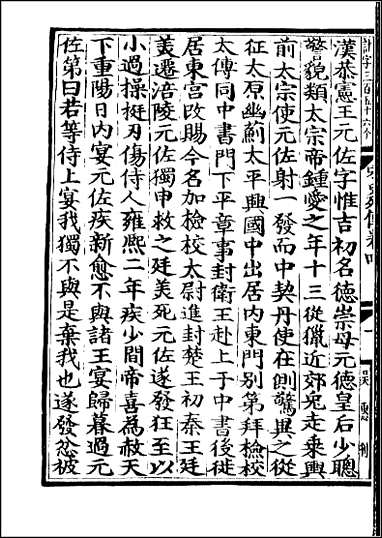 漢恭憲王元佐字惟吉初名德崇母元德皇后少聰
警貌類太宗帝鍾愛之年十三從獵近郊兔走乗輿
前太宗使元佐射一發而中契丹使在側驚異之從
征太原幽薊太平興國中出居内東門別第拜檢校
太傳同中書門下平章事封衛王赴上于中書後徙
居東宫改賜今名加檢校太尉進封楚王初秦王廷
美遷涪陵元佐獨申救之廷美死元佐遂發狂至以
小過操挺刃傷侍人雍熙二年疾少間帝喜為赦天
下重陽日内宴元佐疾新愈不與諸王宴歸暮過元
佐第曰若等侍上宴我獨不與是棄我也遂發忿被